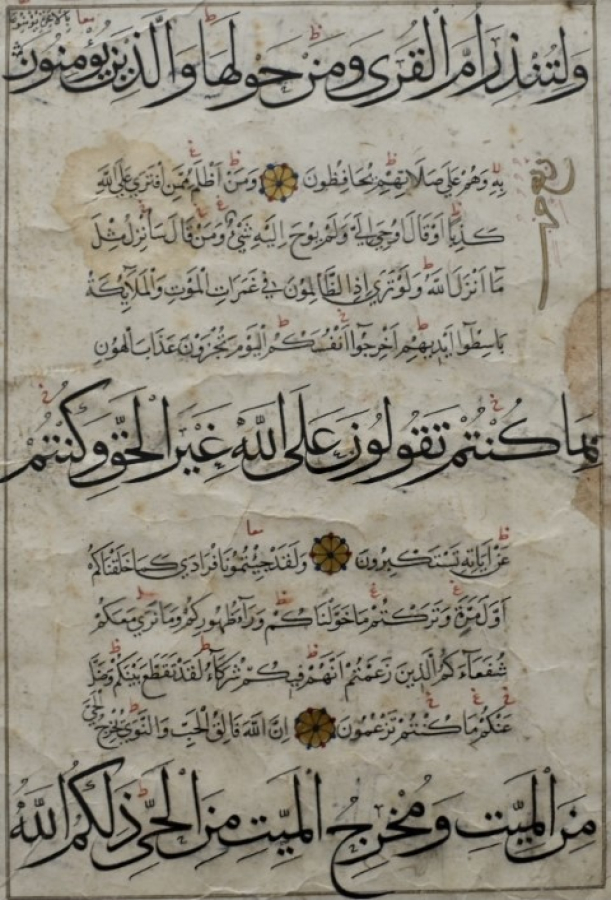 ولتنذر ام القرى ومن حولها والذين يؤمنون
به وهم على صلاتهم يحافظون ومن اظلم ممن افترى على الله
كذبا او قال اوحي الي ولم يوح اليه شيء ومن قال سانزل مثل
ما انزل الله ولو ترى اذ الظالمون في غمرات الموت والملائكة
باسطوا ايديهم اخرجوا انفسكم اليوم تجزون عذاب الهون
بما كنتم تقولون على الله غير الحق وكنتم
عن اياته تستكبرون ولقد جئتمونا فرادى كما خلقناكم
اول مرة وتركتم ما خولناكم وراء ظهوركم وما نرى معكم
شفعاءكم الذين زعمتم انهم فيكم شركاء لقد تقطع بينكم وضل
عنكم ما كنتم تزعمون ان الله فالق الحب والنوى يخرج الحي
من الميت ومخرج الميت من الحي ذلكم الله